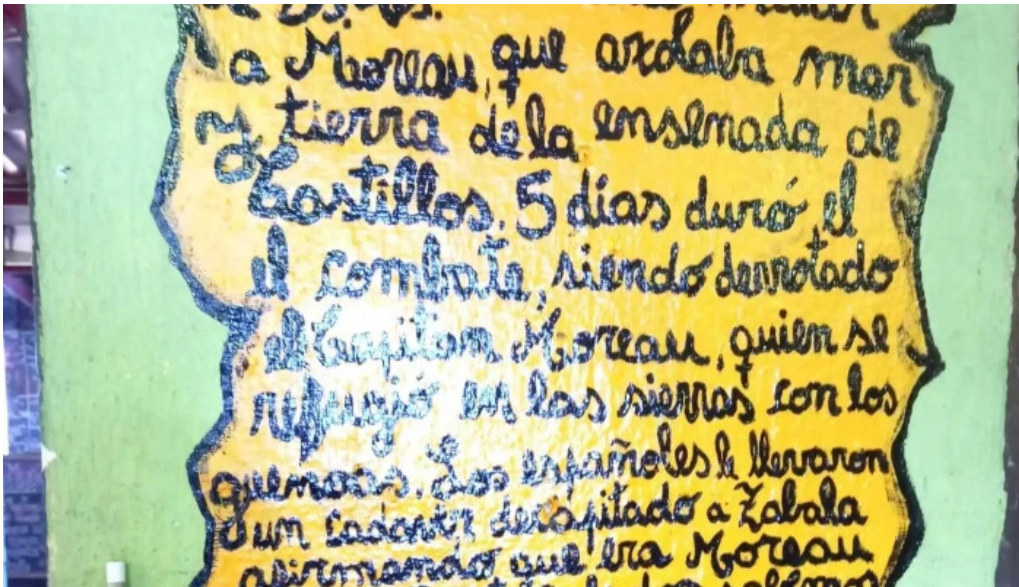 a Moreau, que azolaba mar
y tierra de la ensenada de
Castillos. 5 días duró el
el combate, siendo derrotado
el Capitan Moreau, quien se
refugió en las sierras con los
guenoas. Los españoles le llevaron
un decapitado a Zabala
afirmando que era Moreau